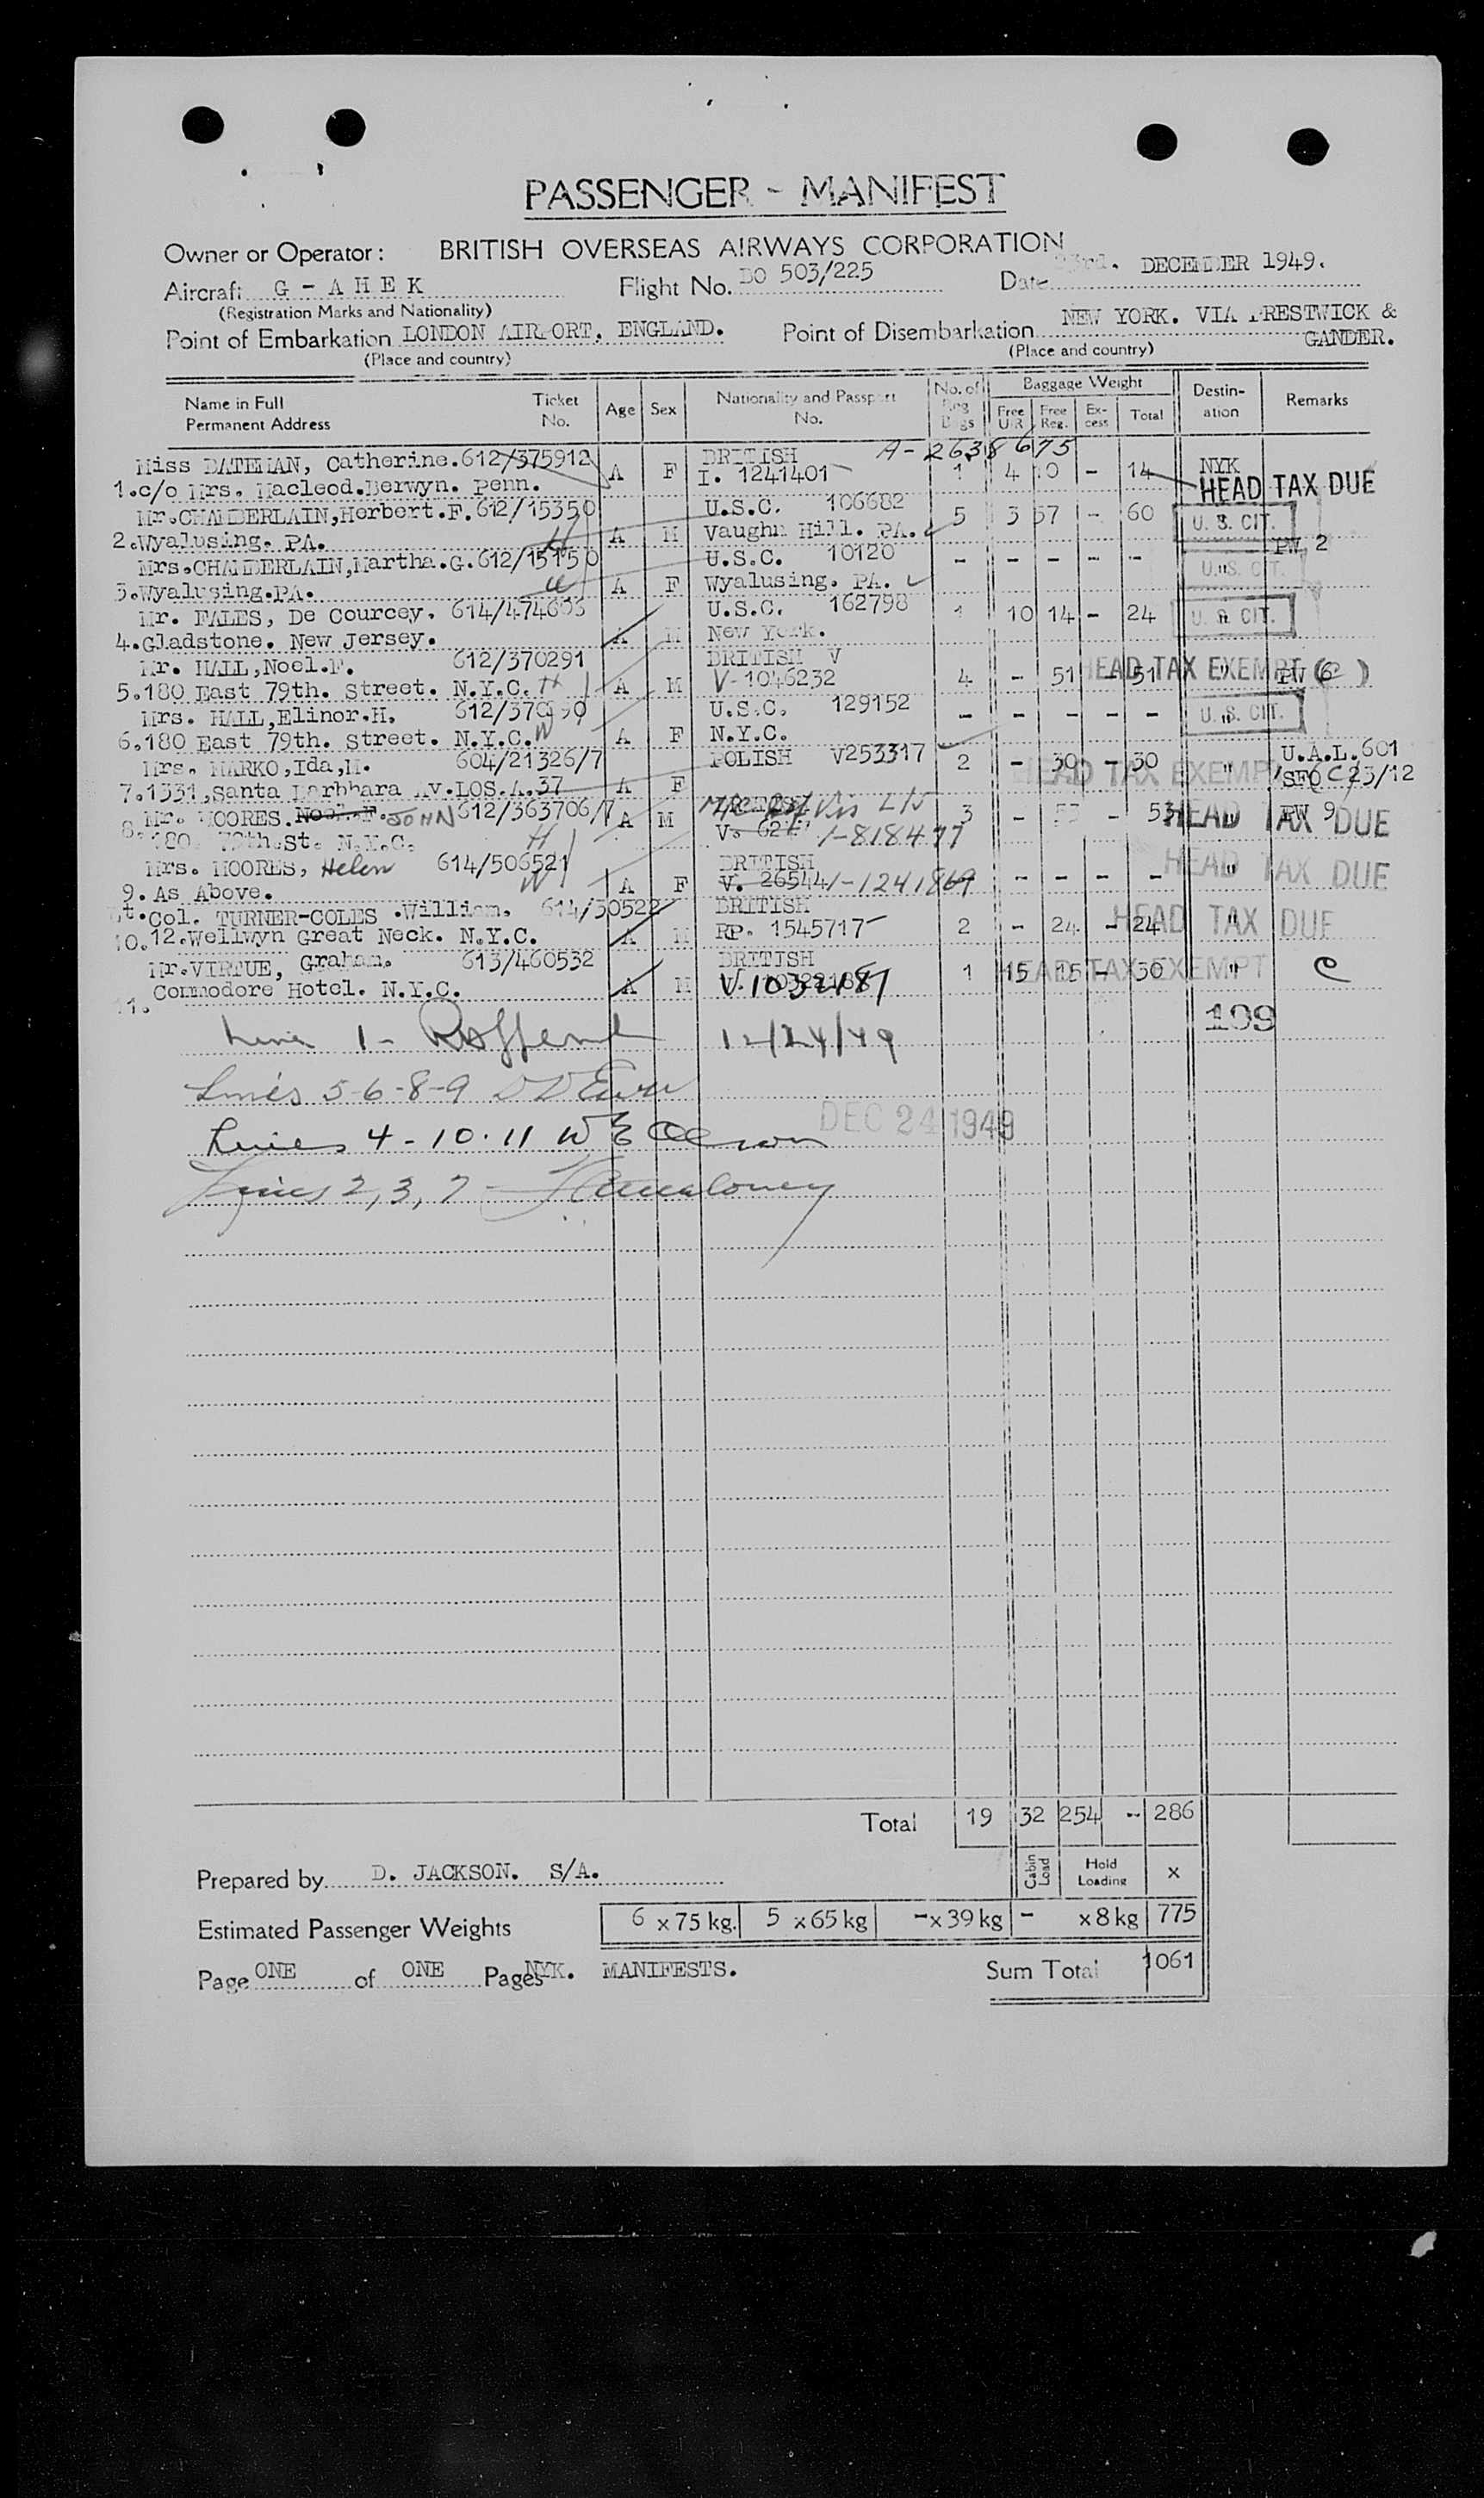 PASSENGER - MANIFEST
Owner or Operator: BRITISH OVERSEAS AIRWAYS CORPORATION
Aircraft G - A H E K Flight No. BO 503/225 Date 23rd. DECEMBER 1949.
(Registration Marks and Nationality)
Point of Embarkation LONDON AIRPORT, ENGLAND. Point of Disembarkation NEW YORK. VIA PRESTWICK & GANDER.
(Place and country) (Place and country)
Name in Full Permanent Address Ticket No. Age Sex Nationality and Passport No. No. of Reg Bags Baggage Weight Free U/R Free Reg. Ex-cess Total Destin-ation Remarks
Miss BATEMAN, Catherine. 612/375912 A F BRITISH A-2638675 1 4 10 - 14 NYK
1. c/o Mrs. Macleod. Berwyn. Penn. I. 1241401 HEAD TAX DUE
Mr. CHAMBERLAIN, Herbert. F. 612/15350 A M U.S.C. 106682 5 3 57 - 60 U. S. CIT.
2. Wyalusing. PA. H Vaughn Hill. PA. PW 2
Mrs. CHAMBERLAIN, Martha. G. 612/15150 A F U.S.C. 10120 - - - - - U. S. CIT.
3. Wyalusing. PA. W Wyalusing. PA.
Mr. FALES, De Courcey. 614/474603 A M U.S.C. 162798 1 10 14 - 24 U. S. CIT.
4. Gladstone. New Jersey. New York.
Mr. HALL, Noel. F. 612/370291 A M BRITISH V 4 - 51 - 51 " PW 6
5. 180 East 79th. Street. N.Y.C. H V-1046232 HEAD TAX EXEMPT
Mrs. HALL, Elinor. H. 612/370290 A F U.S.C. 129152 - - - - - U. S. CIT.
6. 180 East 79th. Street. N.Y.C. W N.Y.C.
Mrs. MARKO, Ida, M. 604/21326/7 A F POLISH V253317 2 - 30 - 30 " U.A.L. 601
7. 1331, Santa Barbhara Av. LOS. A. 37 HEAD TAX EXEMPT SFO C 23/12
Mr. MOORES. Noel. F. JOHN 612/363706/7 A M 3 - 53 - 53 " PW 9
8. 180 79th. St. N.Y.C. H 1-818477 HEAD TAX DUE
Mrs. MOORES, Helen 614/506521 A F BRITISH - - - - - "
9. As Above. W V. 26544 1-1241869 HEAD TAX DUE
Lt. Col. TURNER-COLES. William. 614/30522 A M BRITISH 2 - 24 - 24 "
10. 12. Wellwyn Great Neck. N.Y.C. RP. 1545717 HEAD TAX DUE
Mr. VIRTUE, Graham. 613/460532 A M BRITISH 1 15 15 - 30 " C
11. Commodore Hotel. N.Y.C. V. 1032187 HEAD TAX EXEMPT
199
Line 1 - 12/24/49
Lines 5-6-8-9
Lines 4-10-11 W E Olson DEC 24 1949
Lines 2, 3, 7 -
Total 19 32 254 - 286
Prepared by D. JACKSON. S/A. Cabin Load Hold Loading x
Estimated Passenger Weights 6 x 75 kg. 5 x 65 kg - x 39 kg - x 8 kg 775
Page ONE of ONE Pages NYK. MANIFESTS. Sum Total 1061